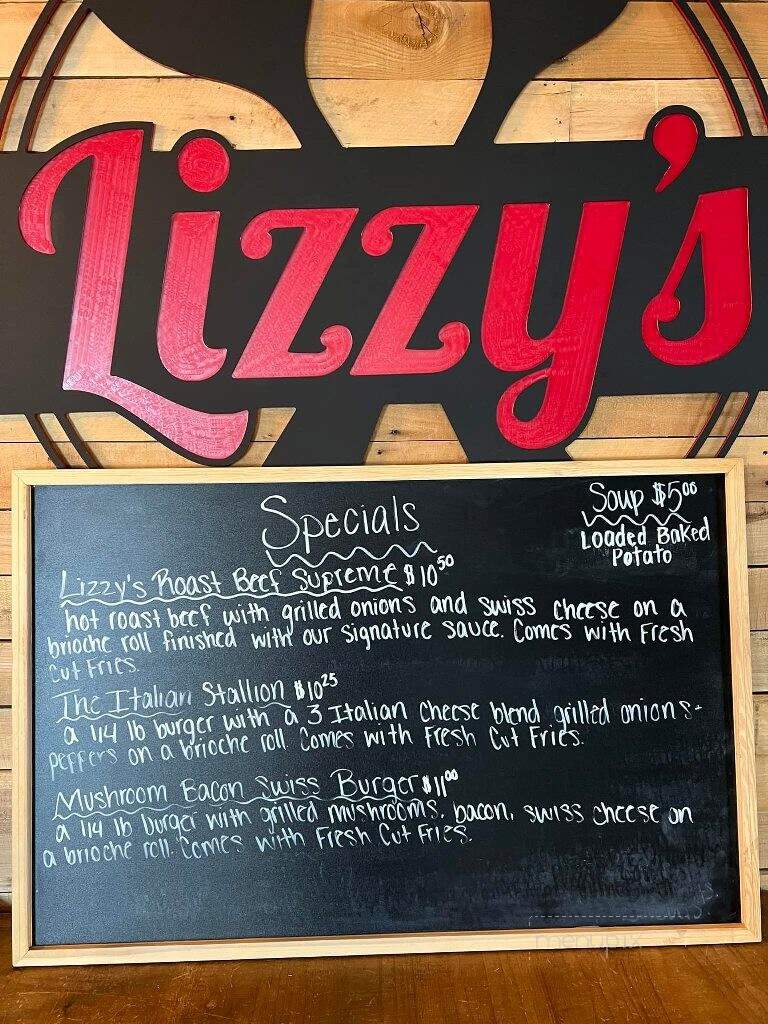 Lizzy's
Specials
Soup $5.00
Loaded Baked
Potato
Lizzy's Roast Beef Supreme $10.50
hot roast beef with grilled onions and swiss cheese on a
brioche roll finished with our signature sauce. Comes with Fresh
Cut Fries.
The Italian Stallion $10.25
a 1/4 lb burger with a 3 Italian cheese blend grilled onions -
peppers on a brioche roll. Comes with Fresh Cut Fries.
Mushroom Bacon Swiss Burger $11.00
a 1/4 lb burger with grilled mushrooms, bacon, swiss cheese on
a brioche roll. Comes with Fresh Cut Fries.
menupix